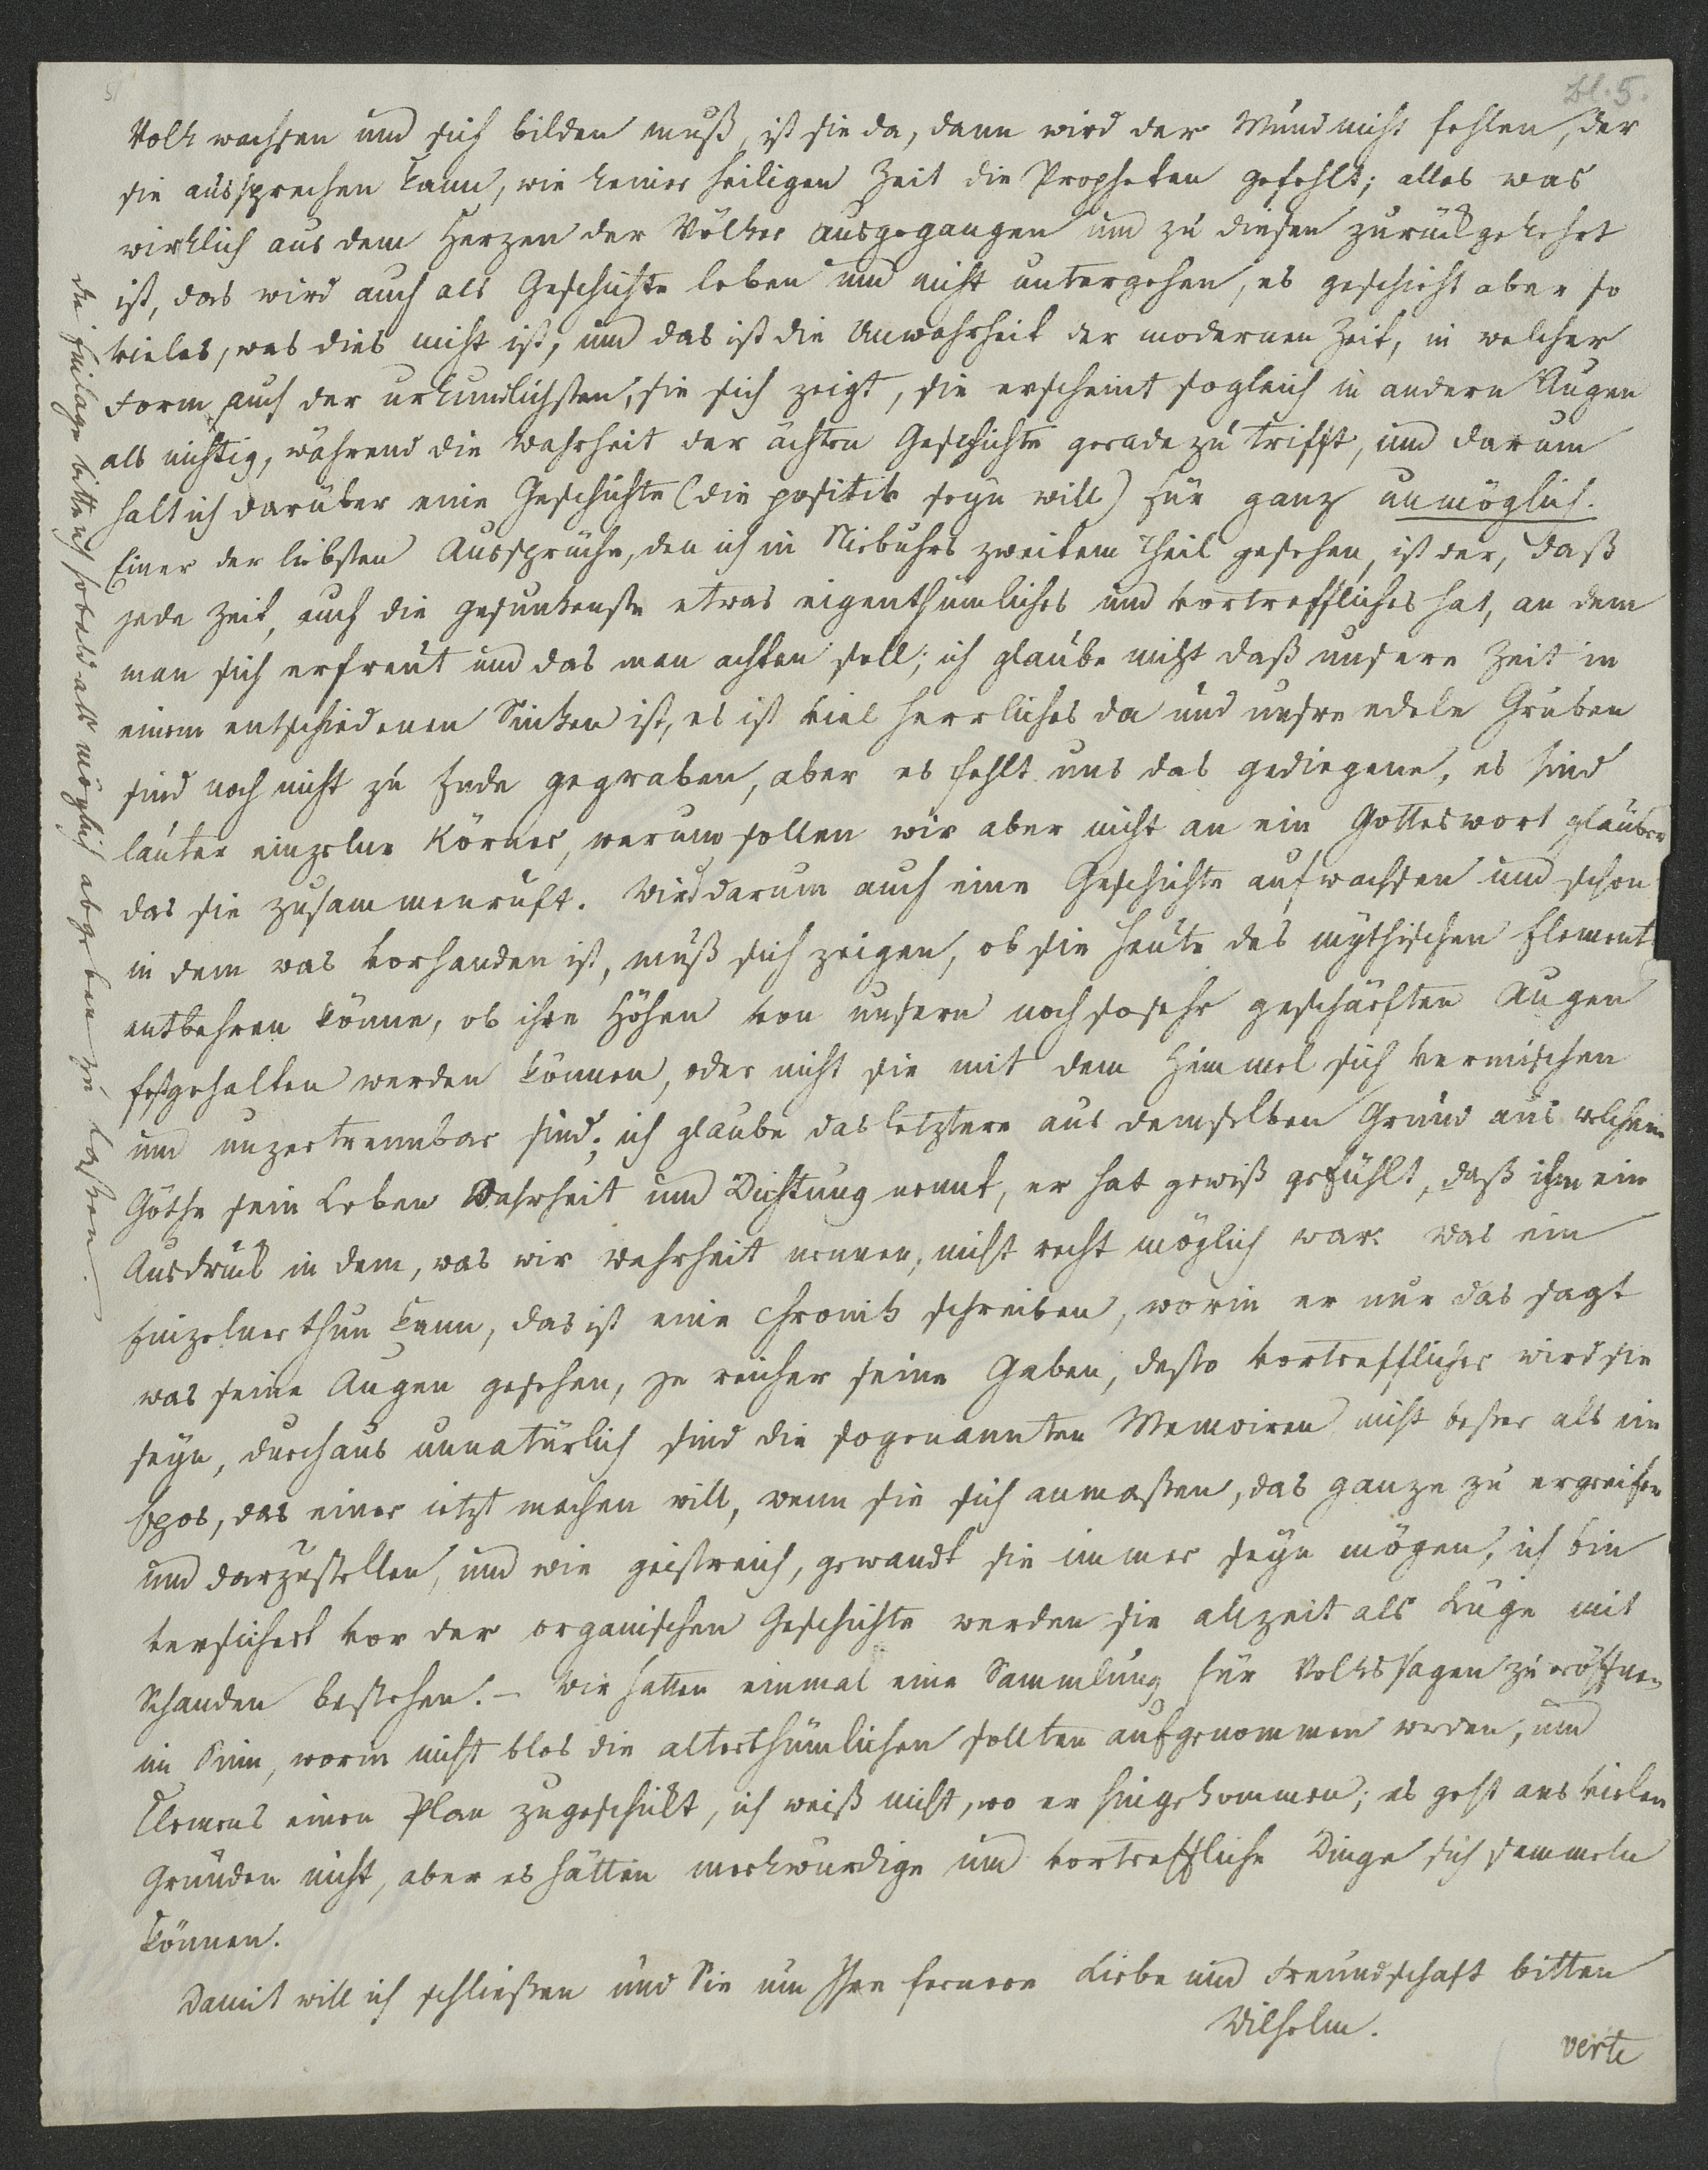 Bl. 5.
Volk wachsen und sich bilden muß, ist sie da, dann wird der Mund nicht fehlen, der
sie aussprechen kann, wie keiner heiligen Zeit die Propheten gefehlt; alles was
wirklich aus dem Herzen der Völker ausgegangen und zu diesen zurückgekehrt
ist, das wird auch als Geschichte leben und nicht untergehen, es geschieht aber so
vieles, was dies nicht ist, und das ist die Unwahrheit der modernen Zeit, in welcher
Form auch der urkundlichsten, sie sich zeigt, sie erscheint sogleich in andern Augen
als nichtig, während die Wahrheit der ächten Geschichte gerade zu trifft, und darum
halt ich darüber eine Geschichte (die positiv seyn will) für ganz unmöglich.
Einer der liebsten Aussprüche, den ich in Niebuhrs zweitem Theil gesehen, ist der, daß
jede Zeit, auch die gesunkenste etwas eigenthümliches und vortreffliches hat, an dem
man sich erfreut und das man achten soll; ich glaube nicht daß unsere Zeit in
einem entschiedenen Sinken ist, es ist viel herrliches da und unsre edeln Gruben
sind noch nicht zu Ende gegraben, aber es fehlt uns das gediegene, es sind
lauter einzelne Körner, warum sollen wir aber nicht an ein Gotteswort glauben
das sie zusammenruft. Wird darum auch eine Geschichte aufwachsen und schon
in dem was vorhanden ist, muß sich zeigen, ob sie heute des mythischen Elements
entbehren könne, ob ihre Höhen von unsern noch sosehr geschärften Augen
festgehalten werden können, oder nicht sie mit dem Himmel sich vermischen
und unzertrennbar sind; ich glaube das letztere aus demselben Grund aus welchem
Göthe sein Leben Wahrheit und Dichtung nennt, er hat gewiß gefühlt, daß ihm ein
Ausdruck in dem, was wir Wahrheit nennen, nicht recht möglich war. Was ein
Einzelner thun kann, das ist eine Chronik schreiben, worin er nur das sagt
was seine Augen gesehen, je reicher seine Gaben, desto vortrefflicher wird sie
seyn, durchaus unnatürlich sind die sogenannten Memoiren nicht beßer als ein
Epos, das einer ietzt machen will, wenn sie sich anmaßen, das ganze zu ergreifen
und darzustellen, und wie geistreich, gewandt sie immer seyn mögen, ich bin
versichert vor der organischen Geschichte werden sie allzeit als Lüge mit
Schanden bestehen. – Wir hatten einmal eine Sammlung für Volkssagen zu eröffnen
im Sinn, worin nicht blos die alterthümlichen sollten aufgenommen werden, und
Clemens einen Plan zugeschickt, ich weiß nicht, wo er hingekommen; es geht aus vielen
Gründen nicht, aber es hätten merkwürdige und vortreffliche Dinge sich sammeln
können.
Damit will ich schließen und Sie um Ihre fernere Liebe und Freundschaft bitten
Wilhelm.
verte
die Einlage bitte ich sobald als möglich abgeben zu laßen.